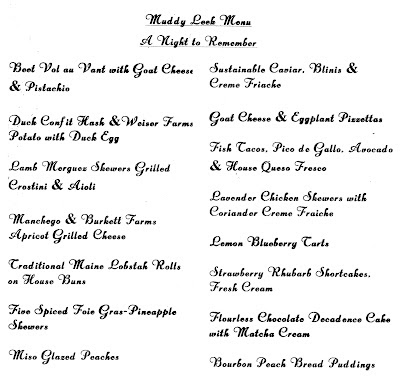 Muddy Leek Menu
A Night to Remember
Beet Vol au Vant with Goat Cheese
& Pistachio
Duck Confit Hash & Weiser Farms
Potato with Duck Egg
Lamb Merguez Skewers Grilled
Crostini & Aioli
Manchego & Burkett Farms
Apricot Grilled Cheese
Traditional Maine Lobstah Rolls
on House Buns
Five Spiced Foie Gras-Pineapple
Skewers
Miso Glazed Peaches
Sustainable Caviar, Blinis &
Creme Friache
Goat Cheese & Eggplant Pizzettas
Fish Tacos, Pico de Gallo, Avocado
& House Queso Fresco
Lavender Chicken Skewers with
Coriander Creme Fraiche
Lemon Blueberry Tarts
Strawberry Rhubarb Shortcakes,
Fresh Cream
Flourless Chocolate Decadence Cake
with Matcha Cream
Bourbon Peach Bread Puddings